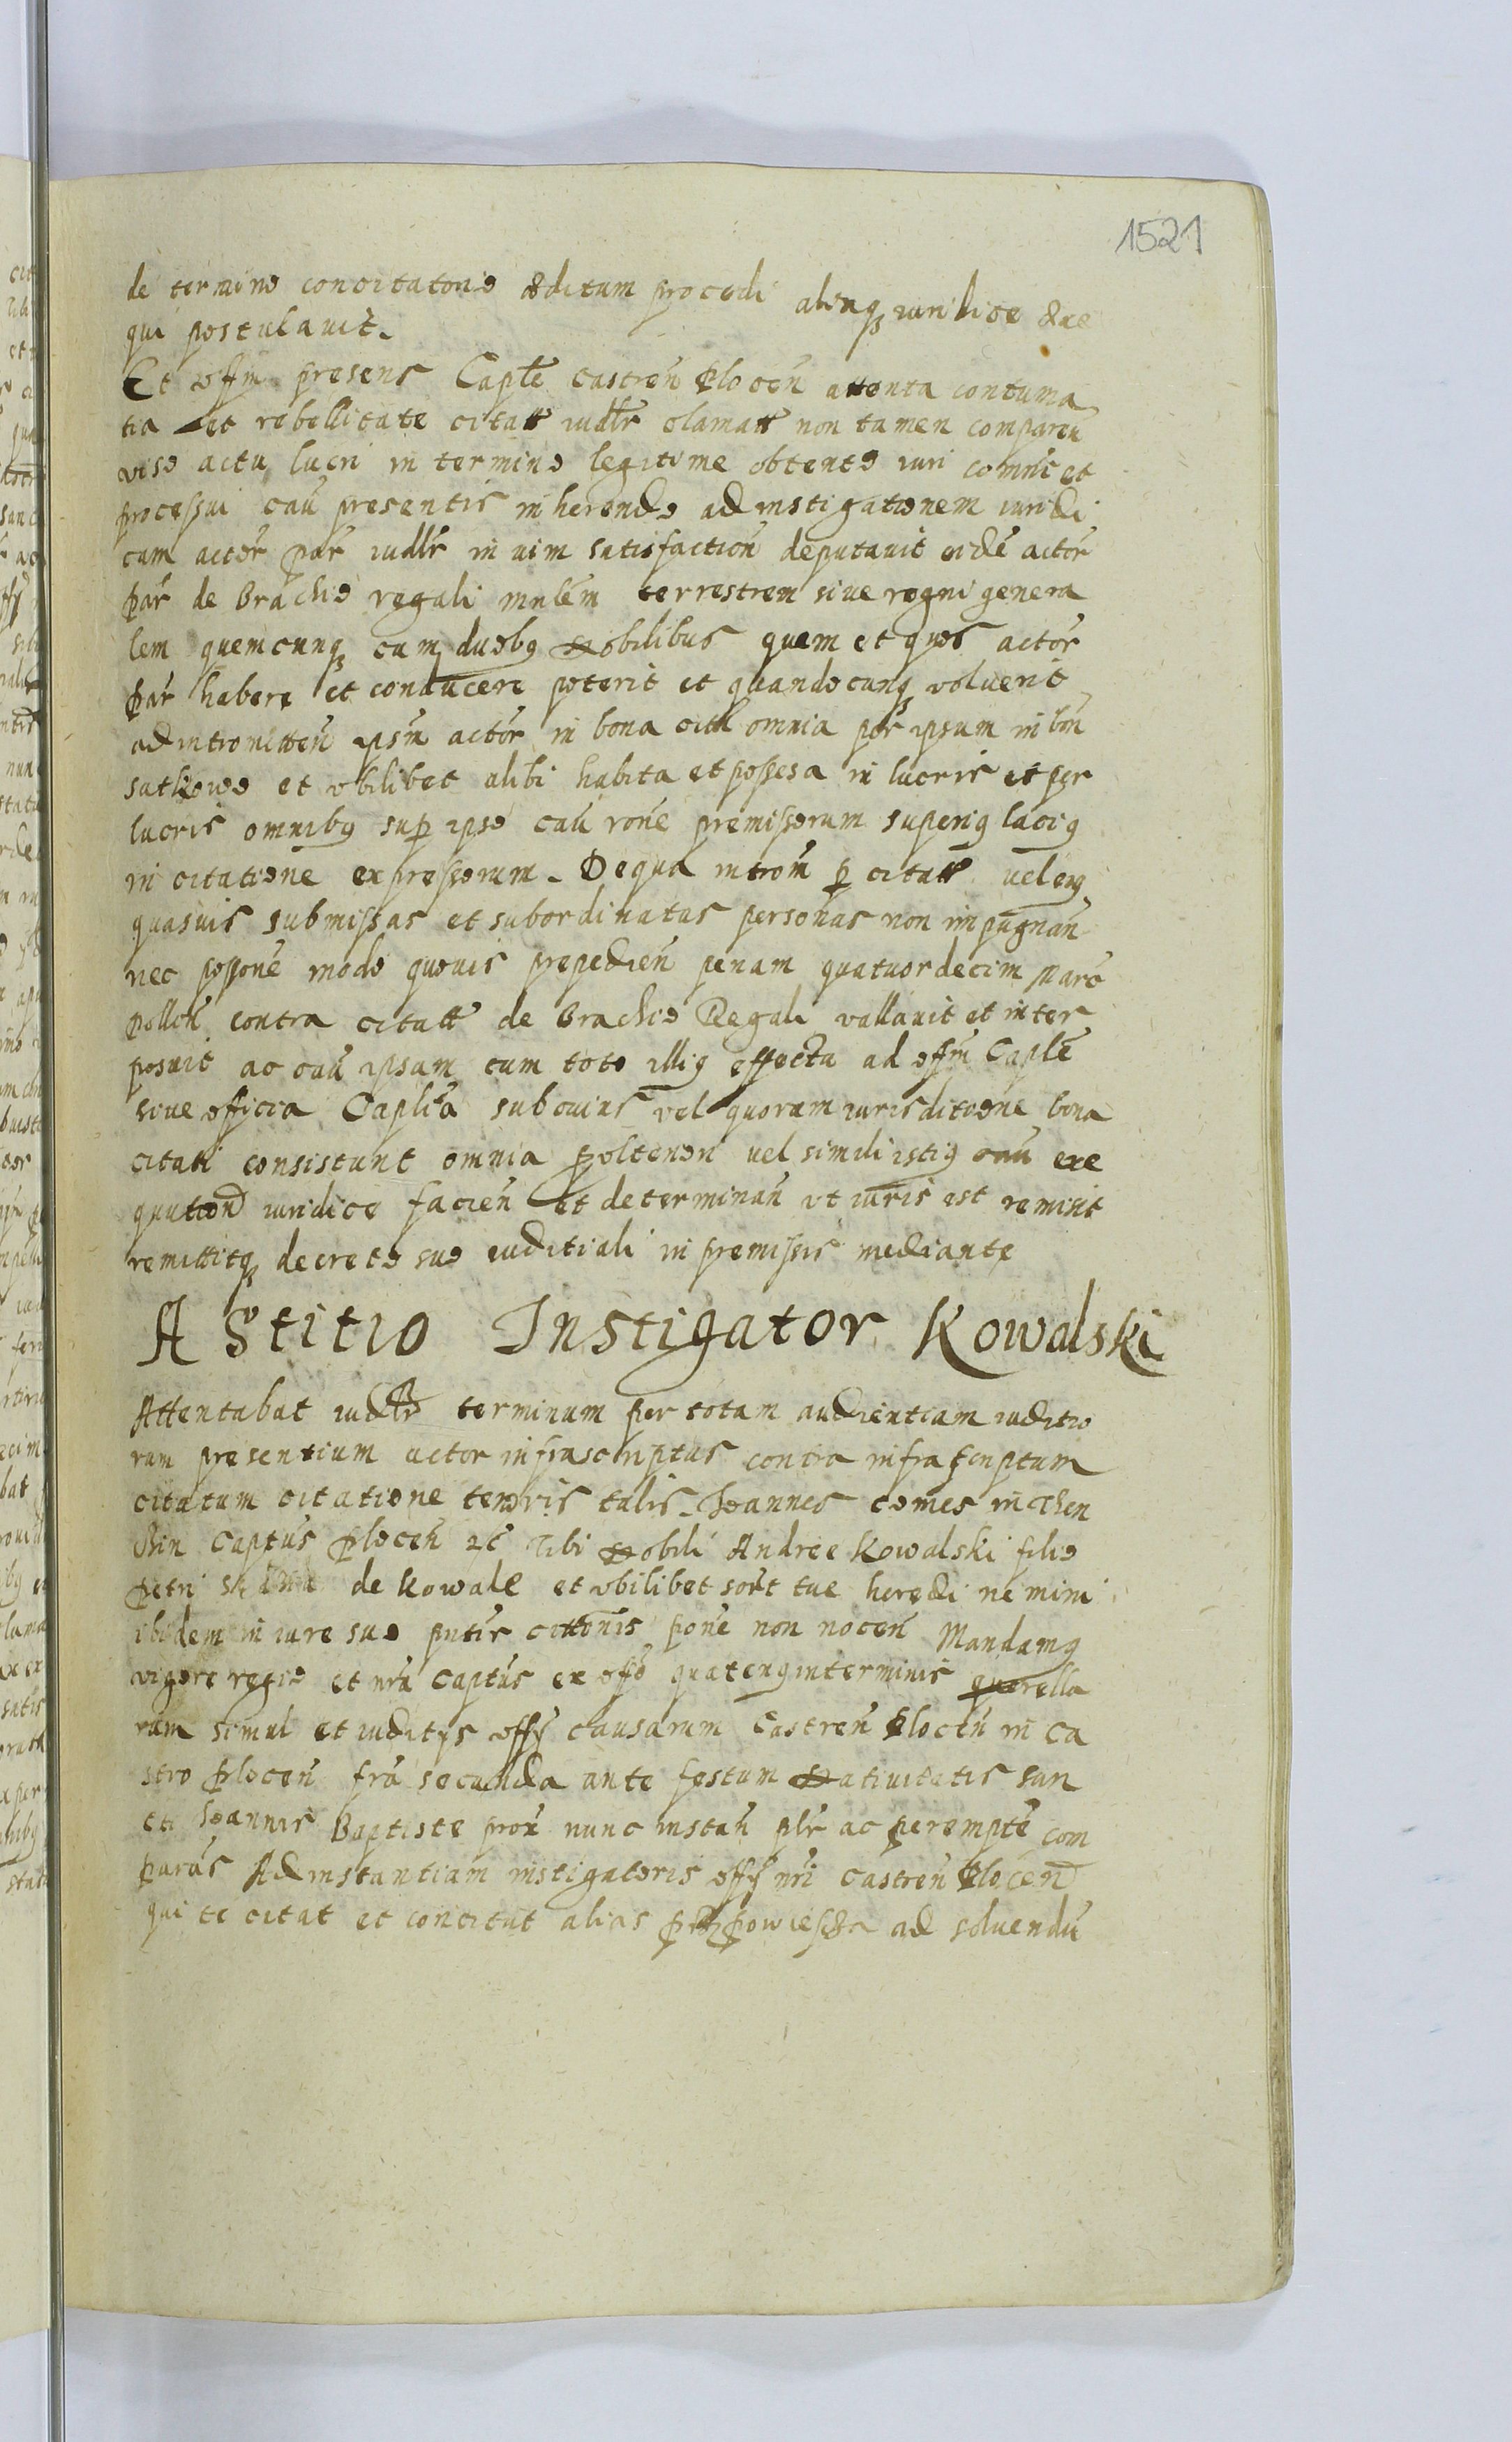 1521
de termino concitatorio editum procedi aliasq iuridice exe
qui postulavit.
Et offm presens Capłe castreñ Plocen̄ attenta contuma
tia et rebellitate citatt iudłr clamatt non tamen compareñ
viso actu lucri in termino legitime obtento iuri comuni et
processui cau presentis inherendo ad instigationem iuridi
cam actor par iudłr in vim satisfaction̄ deputavit eidē actor
par de Brachio regali mnlem terrestrem sive regni genera
lem quemcunq cum duobq Nobilibus quem et quos actor
par habere et conducere poterit et quandocunq voluerit
ad intromitten̄ ipsm actor in bona citti omnia per ipsum in bon̄
satkowo et ubilibet alibi habita et possesa in lucris et per
lucris omnibq sup ipso cau rone premissorum superiq laciq
in citatione expressorum. De qua introm̄ p citatt vel eiq
quasvis submissas et subordinatas personas non impugnan̄
nec ppone modo quovis prepedien̄ penam quatuordecim Marc
pollon̄ contra citatt de Brachio Regali vallavit et inter
posuit ac cau ipsam cum toto illiq effectu ad offm̄ Caplē
sive officia Capliā sub cuius vel quorum iurisditione bona
citati consistunt omnia p oltenon̄ vel simili istiq cau exe
qution̄ iuridice facien̄ et determinan̄ ut iuris est remisit
remittitq decreto suo iuditiali in premissis mediante
AStitio Instigator Kowalski
Attentabat iudłr terminum per totam audientiam iuditio
rum presentium actor infrascriptus contra infrascriptum
citatum citatione tenoris talis. Joannes comes in Then
chin Captus Plocen̄ 2c Tibi Nobili Andree Kowalski filio
petri de Kowale et ubilibet sort tue heredi nemini
ibidem in iure suo pntis cittonis pone non nocen̄ Mandamq
vigore regio et nra Captus ex offo quatenq in terminis querella
rum simul et iuditys offy causarum Castren̄ Plocen̄ in Ca
stro Plocen̄ fra secunda ante festum Nativitatis san
cti Joannis Baptiste prox nunc instan̄ plr ac perempte com
paras Ad instantiam instigatoris offy nri Castren̄ Plocen̄
qui te citat et concitat alias przypowiescza ad solvendū